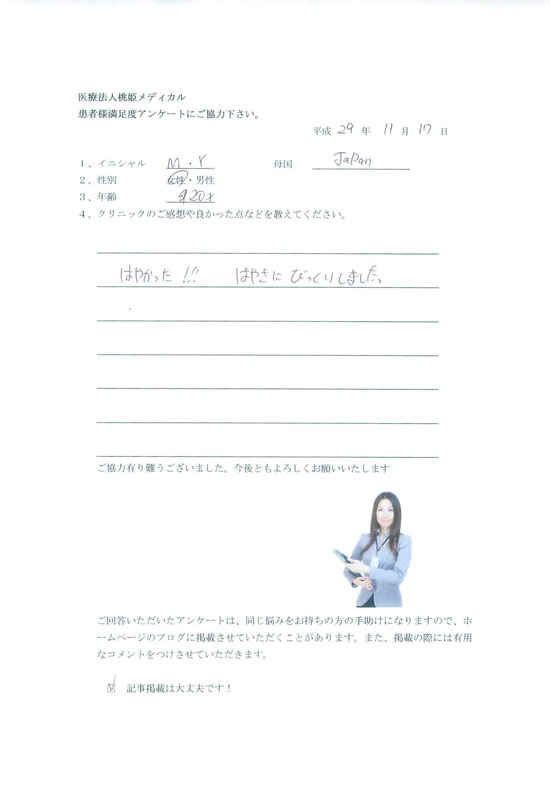 医療法人桃姫メディカル
患者様満足度アンケートにご協力下さい。
平成 29 年 11 月 17 日
1、イニシャル M・Y 母国 Japan
2、性別 女性・男性
3、年齢 20才
4、クリニックのご感想や良かった点などを教えてください。
はやかった!!! はやさにびっくりしました。
ご協力有り難うございました。今後ともよろしくお願いいたします
ご回答いただいたアンケートは、同じ悩みをお持ちの方の手助けになりますので、ホ
ームページのブログに掲載させていただくことがあります。また、掲載の際には有用
なコメントをつけさせていただきます。
☑ 記事掲載は大丈夫です!